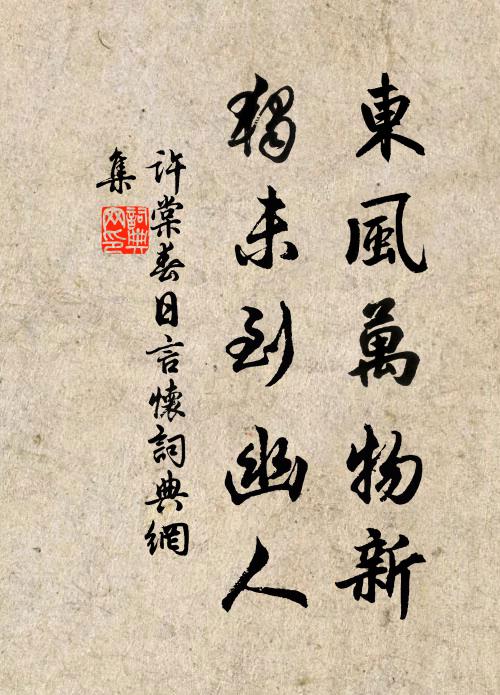 東風萬物新
獨未到幽人
許棠春日言懷詞典網
集
詞典網印